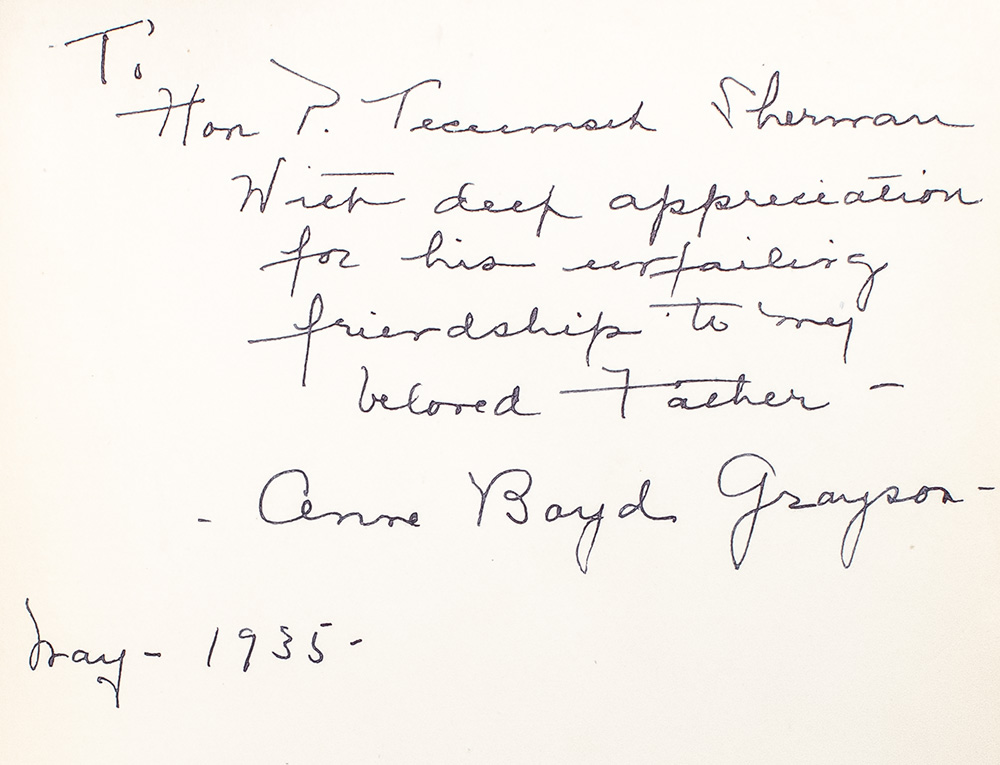 To
Hon P. Tecumseh Sherman
With deep appreciation
for his unfailing
friendship to my
beloved Father -
- Anne Boyd Grayson -
May - 1935 -